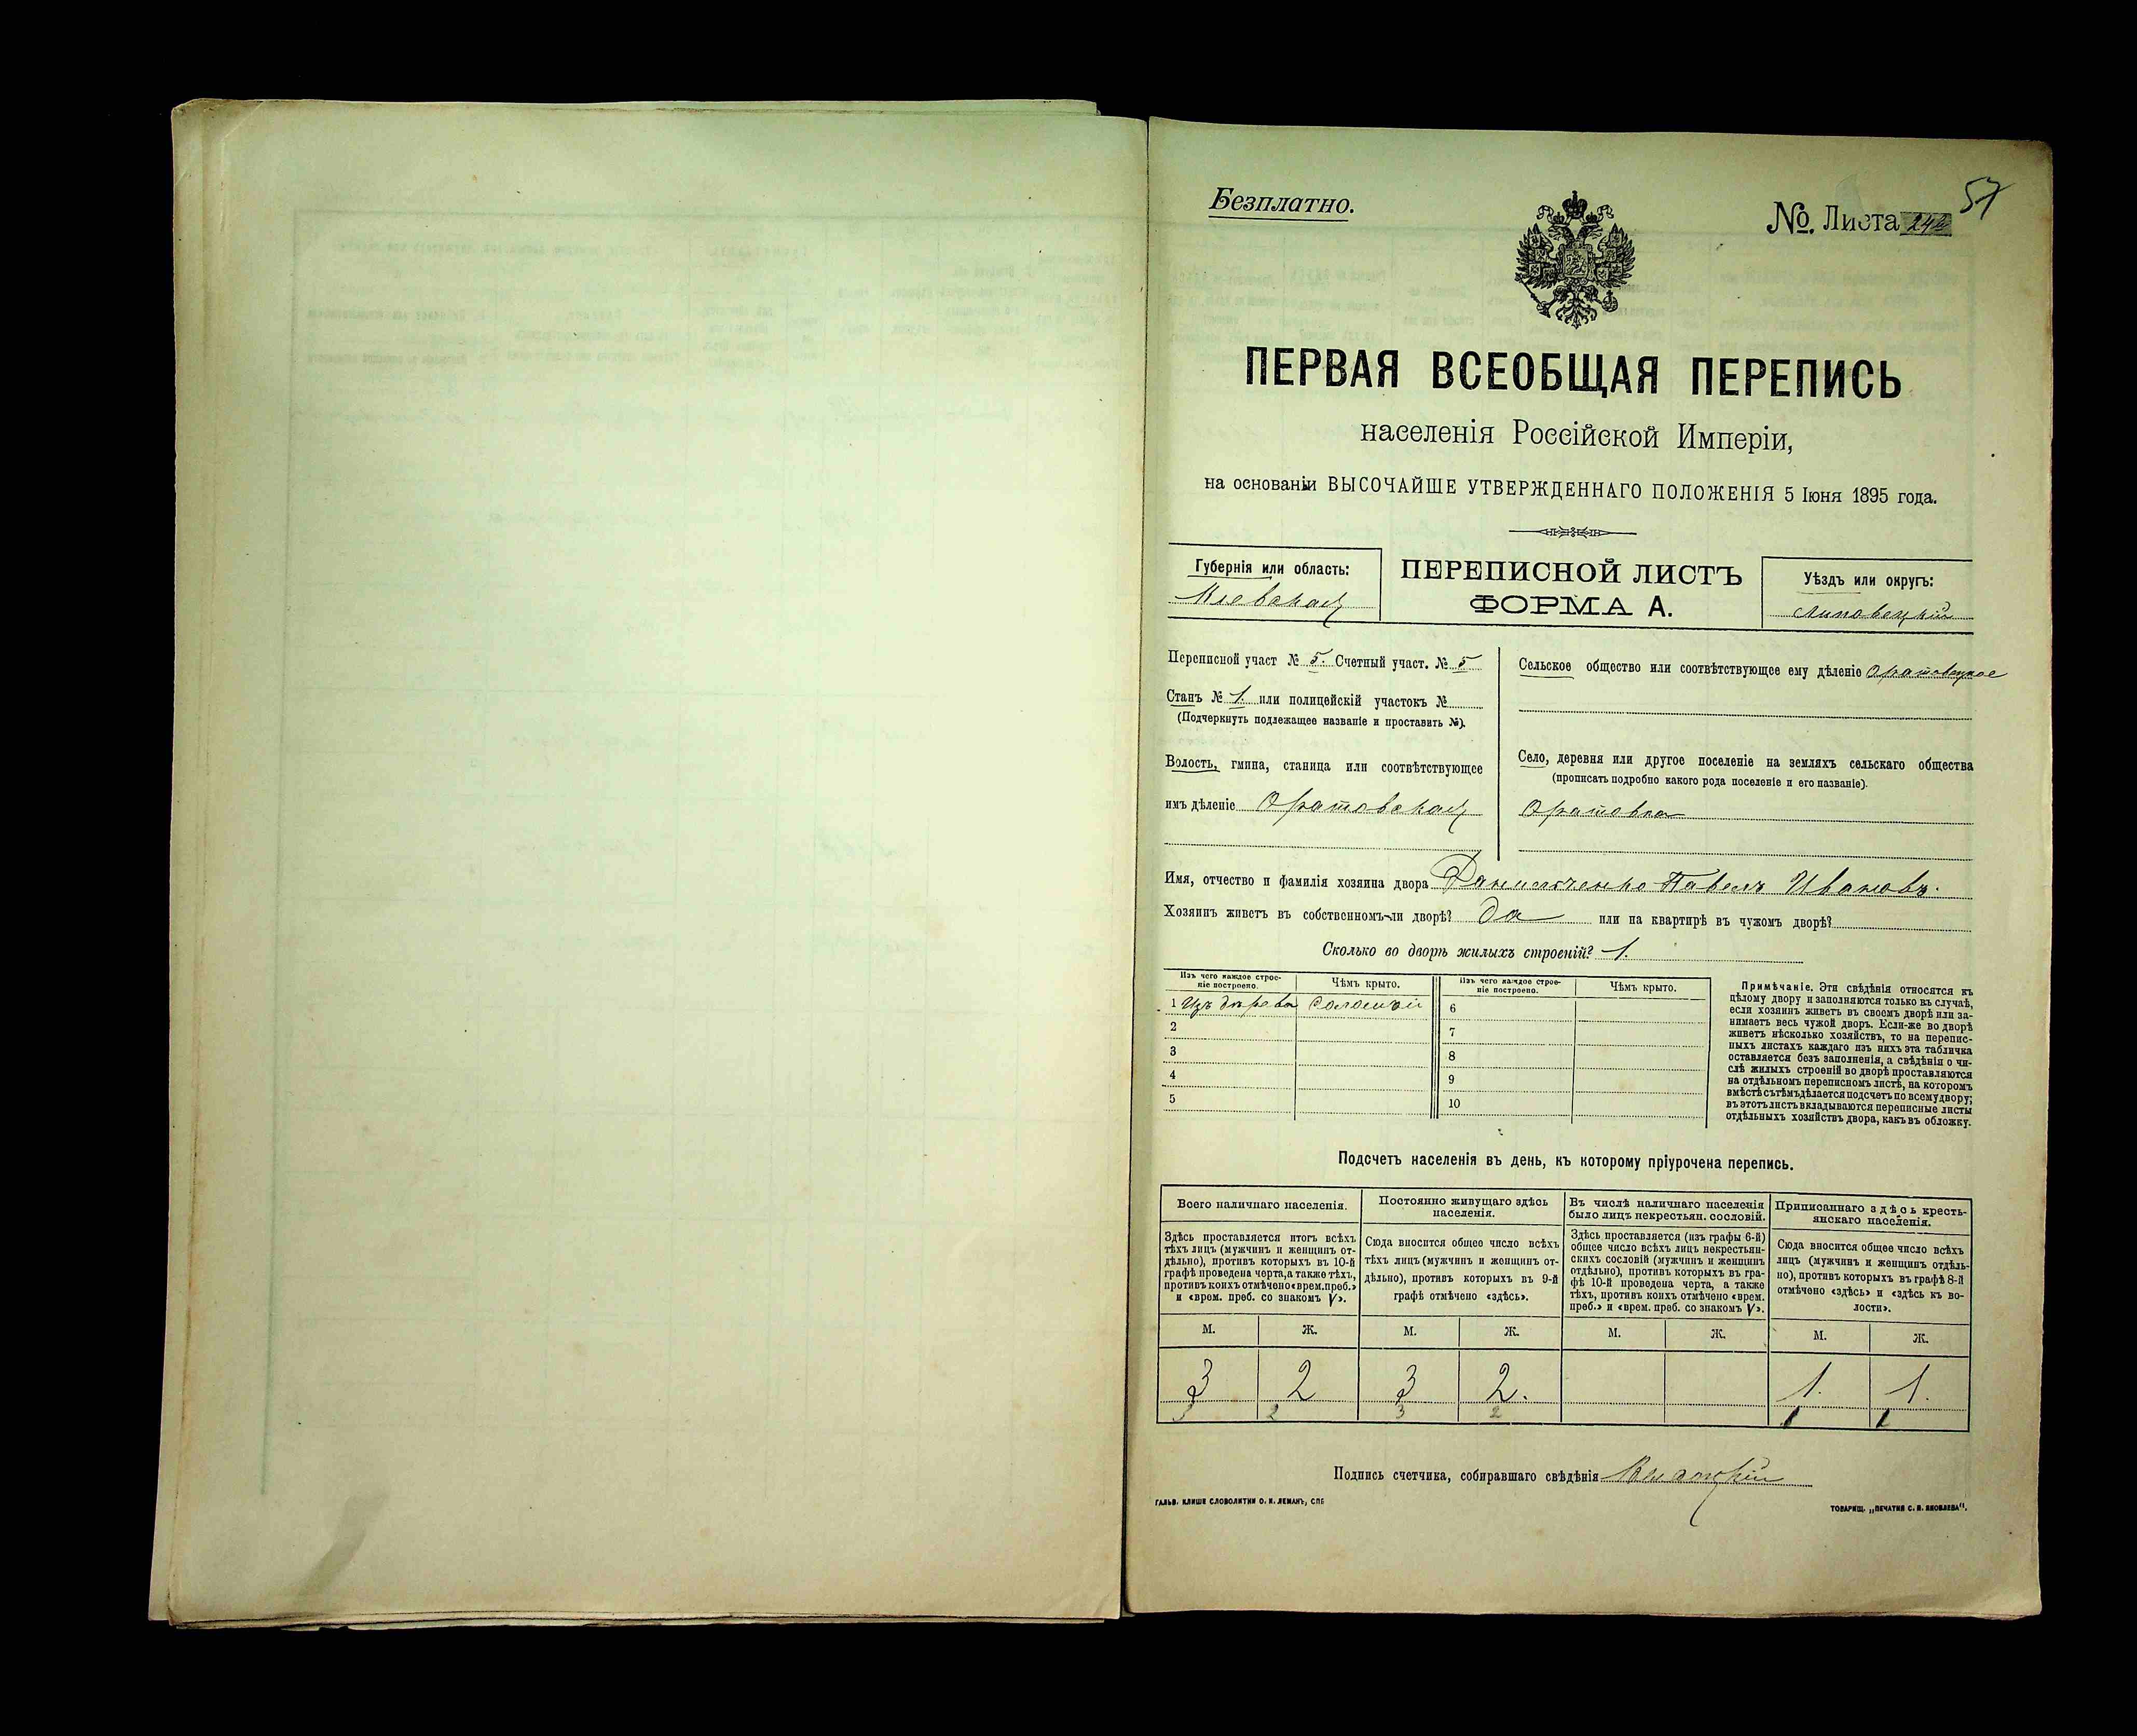 Безплатно.
№. Листа
57
ПЕРВАЯ ВСЕОБЩАЯ ПЕРЕПИСЬ
населенія Россійской Имперіи,
на основаніи ВЫСОЧАЙШЕ УТВЕРЖДЕННАГО ПОЛОЖЕНІЯ 5 Іюня 1895 года.
Губернія или область:
Кіевская
ПЕРЕПИСНОЙ ЛИСТЪ
ФОРМА А.
Уѣздъ или округъ:
Липовецкій
Переписной участ № 5. Счетный участ. № 5
Станъ № 1. или полицейскій участокъ №
(Подчеркнуть подлежащее названіе и проставить №).
Волость, гмина, станица или соотвѣтствующее
имъ дѣленіе Оратовская
Сельское общество или соотвѣтствующее ему дѣленіе Оратовецкое
Село, деревня или другое поселеніе на земляхъ сельскаго общества
(прописать подробно какого рода поселеніе и его названіе).
Оратовка
Имя, отчество и фамилія хозяина двора Данильченко Павелъ Ивановъ.
Хозяинъ живетъ въ собственномъ-ли дворѣ? Да или на квартирѣ въ чужомъ дворѣ?
Сколько во дворѣ жилыхъ строеній? 1.
Изъ чего каждое строе-
ніе построено.
Чѣмъ крыто.
Изъ чего каждое строе-
ніе построено.
Чѣмъ крыто.
1 Изъ дерева соломой 6
2 7
3 8
4 9
5 10
Примѣчаніе. Эти свѣдѣнія относятся къ
цѣлому двору и заполняются только въ случаѣ,
если хозяинъ живетъ въ своемъ дворѣ или за-
нимаетъ весь чужой дворъ. Если-же во дворѣ
живетъ нѣсколько хозяйствъ, то на перепис-
ныхъ листахъ каждаго изъ нихъ эта табличка
оставляется безъ заполненія, а свѣдѣнія о чи-
слѣ жилыхъ строеній во дворѣ проставляются
на отдѣльномъ переписномъ листѣ, на которомъ
вмѣстѣ съ тѣмъ дѣлается подсчетъ по всему двору;
въ этотъ листъ вкладываются переписные листы
отдѣльныхъ хозяйствъ двора, какъ въ обложку.
Подсчетъ населенія въ день, къ которому пріурочена перепись.
Всего наличнаго населенія.
Здѣсь проставляется итогъ всѣхъ
тѣхъ лицъ (мужчинъ и женщинъ от-
дѣльно), противъ которыхъ въ 10-й
графѣ проведена черта, а также тѣхъ,
противъ коихъ отмѣчено «врем. преб.»
и «врем. преб. со знакомъ V».
Постоянно живущаго здѣсь
населенія.
Сюда вносится общее число всѣхъ
тѣхъ лицъ (мужчинъ и женщинъ от-
дѣльно), противъ которыхъ въ 9-й
графѣ отмѣчено «здѣсь».
Въ числѣ наличнаго населенія
было лицъ некрестьян. сословій.
Здѣсь проставляется (изъ графы 6-й)
общее число всѣхъ лицъ некрестьян-
скихъ сословій (мужчинъ и женщинъ
отдѣльно), противъ которыхъ въ гра-
фѣ 10-й проведена черта, а также
тѣхъ, противъ коихъ отмѣчено «врем.
преб.» и «врем. преб. со знакомъ V».
Приписаннаго здѣсь кресть-
янскаго населенія.
Сюда вносится общее число всѣхъ
лицъ (мужчинъ и женщинъ отдѣль-
но), противъ которыхъ въ графѣ 8-й
отмѣчено «здѣсь» и «здѣсь къ во-
лости».
М. Ж. М. Ж. М. Ж. М. Ж.
3 2 3 2. 1. 1.
3 2 3 2 1 1
Подпись счетчика, собиравшаго свѣдѣнія
ГАЛЬВ. КЛИШЕ СЛОВОЛИТНИ О. И. ЛЕМАНЪ, СПБ
ТОВАРИЩ. „ПЕЧАТНЯ С. П. ЯКОВЛЕВА“.